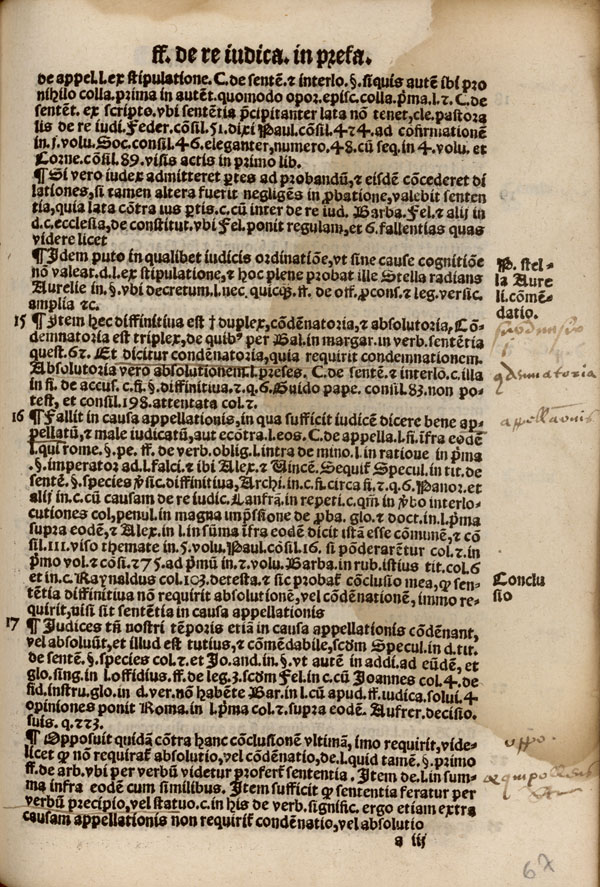 ff. de re iudica. in prefa.
de appel.l.ex stipulatione. C. de sentē.⁊ interlo. §. siquis autē ibi pro
nihilo colla. prima in autēt. quomodo opor. episc. colla. p̄ma. l.⁊. C. de
sentēt. ex scripto. vbi sentētia p̄cipitanter lata nō tenet, cle. pastora
lis de re iudi. Feder. cōsil. 51. dixi Paul. cōsil. 474. ad cōfirmationē
in.5. volu. Soc. consil. 46. eleganter, numero. 48. cū seq. in 4. volu. et
Corne. cōsil. 89. visis actis in primo lib.
¶ Si vero iudex admitteret ꝑtes ad probandū, ⁊ eisdē cōcederet di
lationes, si tamen altera fuerit negligēs in ꝓbatione, valebit senten
tia, quia lata cōtra ius ꝑtis. c. cū inter de re iud. Barba. Fel. ⁊ alij in
d. c. ecclesia, de constitut. vbi Fel. ponit regulam, et 6. fallentias quas
videre licet
¶ Idem puto in qualibet iudicis ordinatiōe, vt sine cause cognitiōe
nō valeat. d. l. ex stipulatione, ⁊ hoc plene probat ille Stella radians
Aurelie in. §. vbi decretum. l. nec quicq̄. ff. de off. ꝓcons. ⁊ leg. versic.
amplia ⁊c.
P. stel-
la Aure
li. cōmē-
datio.
15 ¶ Item hec diffinitiua est † duplex, cōdēnatoria, ⁊ absolutoria, Cō-
demnatoria est triplex, de quibꝰ per Bal. in margar. in verb. sententia
quest. 6⁊. Et dicitur condēnatoria, quia requirit condemnationem.
Absolutoria vero absolutionem. l. preses. C. de sentē. ⁊ interlo. c. illa
in fi. de accus. c. fi. §. diffinitiua. ⁊. q. 6. Guido pape. consil. 83. non po-
test, et consil. 198. attentata col. ⁊.
16 ¶ Fallit in causa appellationis, in qua sufficit iudicē dicere bene ap-
pellatū, ⁊ male iudicatū, aut ecōtra. l. eos. C. de appella. l. fi. īfra eodē
l. qui rome. §. pe. ff. de verb. oblig. l. intra de mino. l. in ratione in p̄ma
. §. imperator ad. l. falci. ⁊ ibi Alex. ⁊ Vincē. Sequit̄ Specul. in tit. de
sentē. §. species ꝟsic. diffinitiua, Archi. in. c. fi. circa fi. ⁊. q. 6. Panor. et
alij in. c. cū causam de re iudic. Lanfrā. in repeti. c. qm̄ in ꝟbo interlo-
cutiones col, penul. in magna imp̄ssione de ꝓba. glo. ⁊ doct. in. l. p̄ma
supra eodē, ⁊ Alex. in l. in sūma īfra eodē dicit istā esse cōmunē, ⁊ cō
sil. 111. viso themate in. 5. volu. Paul. cōsil. 16. si pōderarētur col. ⁊. in
p̄mo vol. ⁊ cōsi. ⁊75. ad p̄mū in. ⁊. volu. Barba. in rub. istius tit. col. 6
et in. c. Raynaldus col. 103. de testa. ⁊ sic probat̄ cōclusio mea, ꝙ sen-
tētia diffinitiua nō requirit absolutionē, vel cōdēnationē, immo re-
quirit, nisi sit sentētia in causa appellationis
Conclu
sio
17 ¶ Iudices tn̄ nostri tēporis etiā in causa appellationis cōdēnant,
vel absoluūt, et illud est tutius, ⁊ cōmēdabile, scdm Specul. in d. tit.
de sentē. §. species col. ⁊. et Jo. and. in. §. vt autē in addi. ad eūdē, et
glo. sing. in l. offidius. ff. de leg. 3. scdm Fel. in c. cū Joannes col. 4. de
fid. instru. glo. in d. ver. nō habēte Bar. in l. cū apud. ff. iudica. solui. 4
opiniones ponit Roma. in l. p̄ma col. ⁊. supra eodē. Aufrer. decisio.
suis. q. ⁊⁊3.
¶ Opposuit quidā cōtra hanc cōclusionē vltimā, imo requirit, vide-
licet ꝙ nō requirat̄ absolutio, vel cōdēnatio, de. l. quid tamē. §. primo
ff. de arb. vbi per verbū videtur profert̄ sententia. Item de. l. in sum-
ma infra eodē cum similibus. Item sufficit ꝙ sententia feratur per
verbū precipio, vel statuo. c. in his de verb. signific. ergo etiam extra
causam appellationis non requirit̄ condēnatio, vel absolutio
a iij
appellationis
oppo.
67